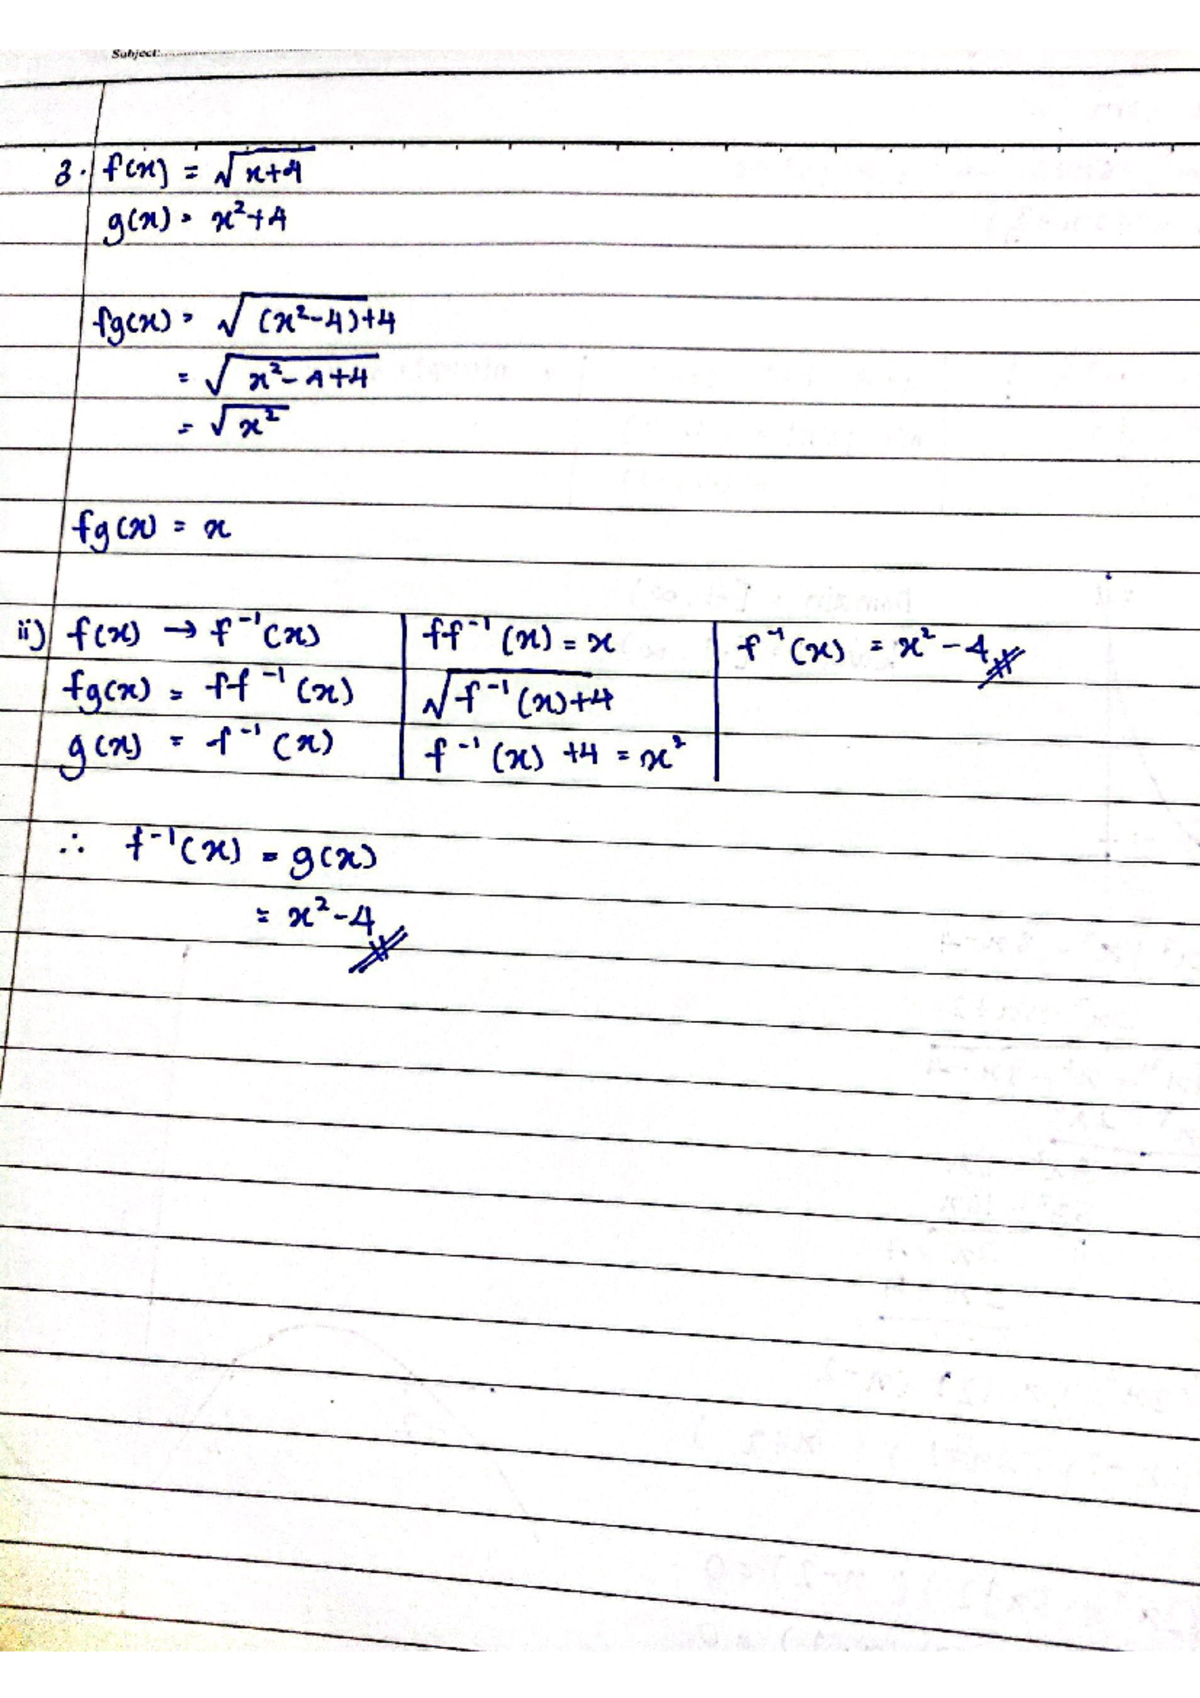 Subject:
3. f(x) = √x+4
g(x) = x²+4
fg(x) = √(x²-4)+4
= √x²-4+4
= √x²
fg(x) = x
ii) f(x) → f⁻¹(x)
fg(x) = ff⁻¹(x)
g(x) = f⁻¹(x)
ff⁻¹(x) = x
√f⁻¹(x)+4
f⁻¹(x) +4 = x²
f⁻¹(x) = x²-4
∴ f⁻¹(x) = g(x)
= x²-4